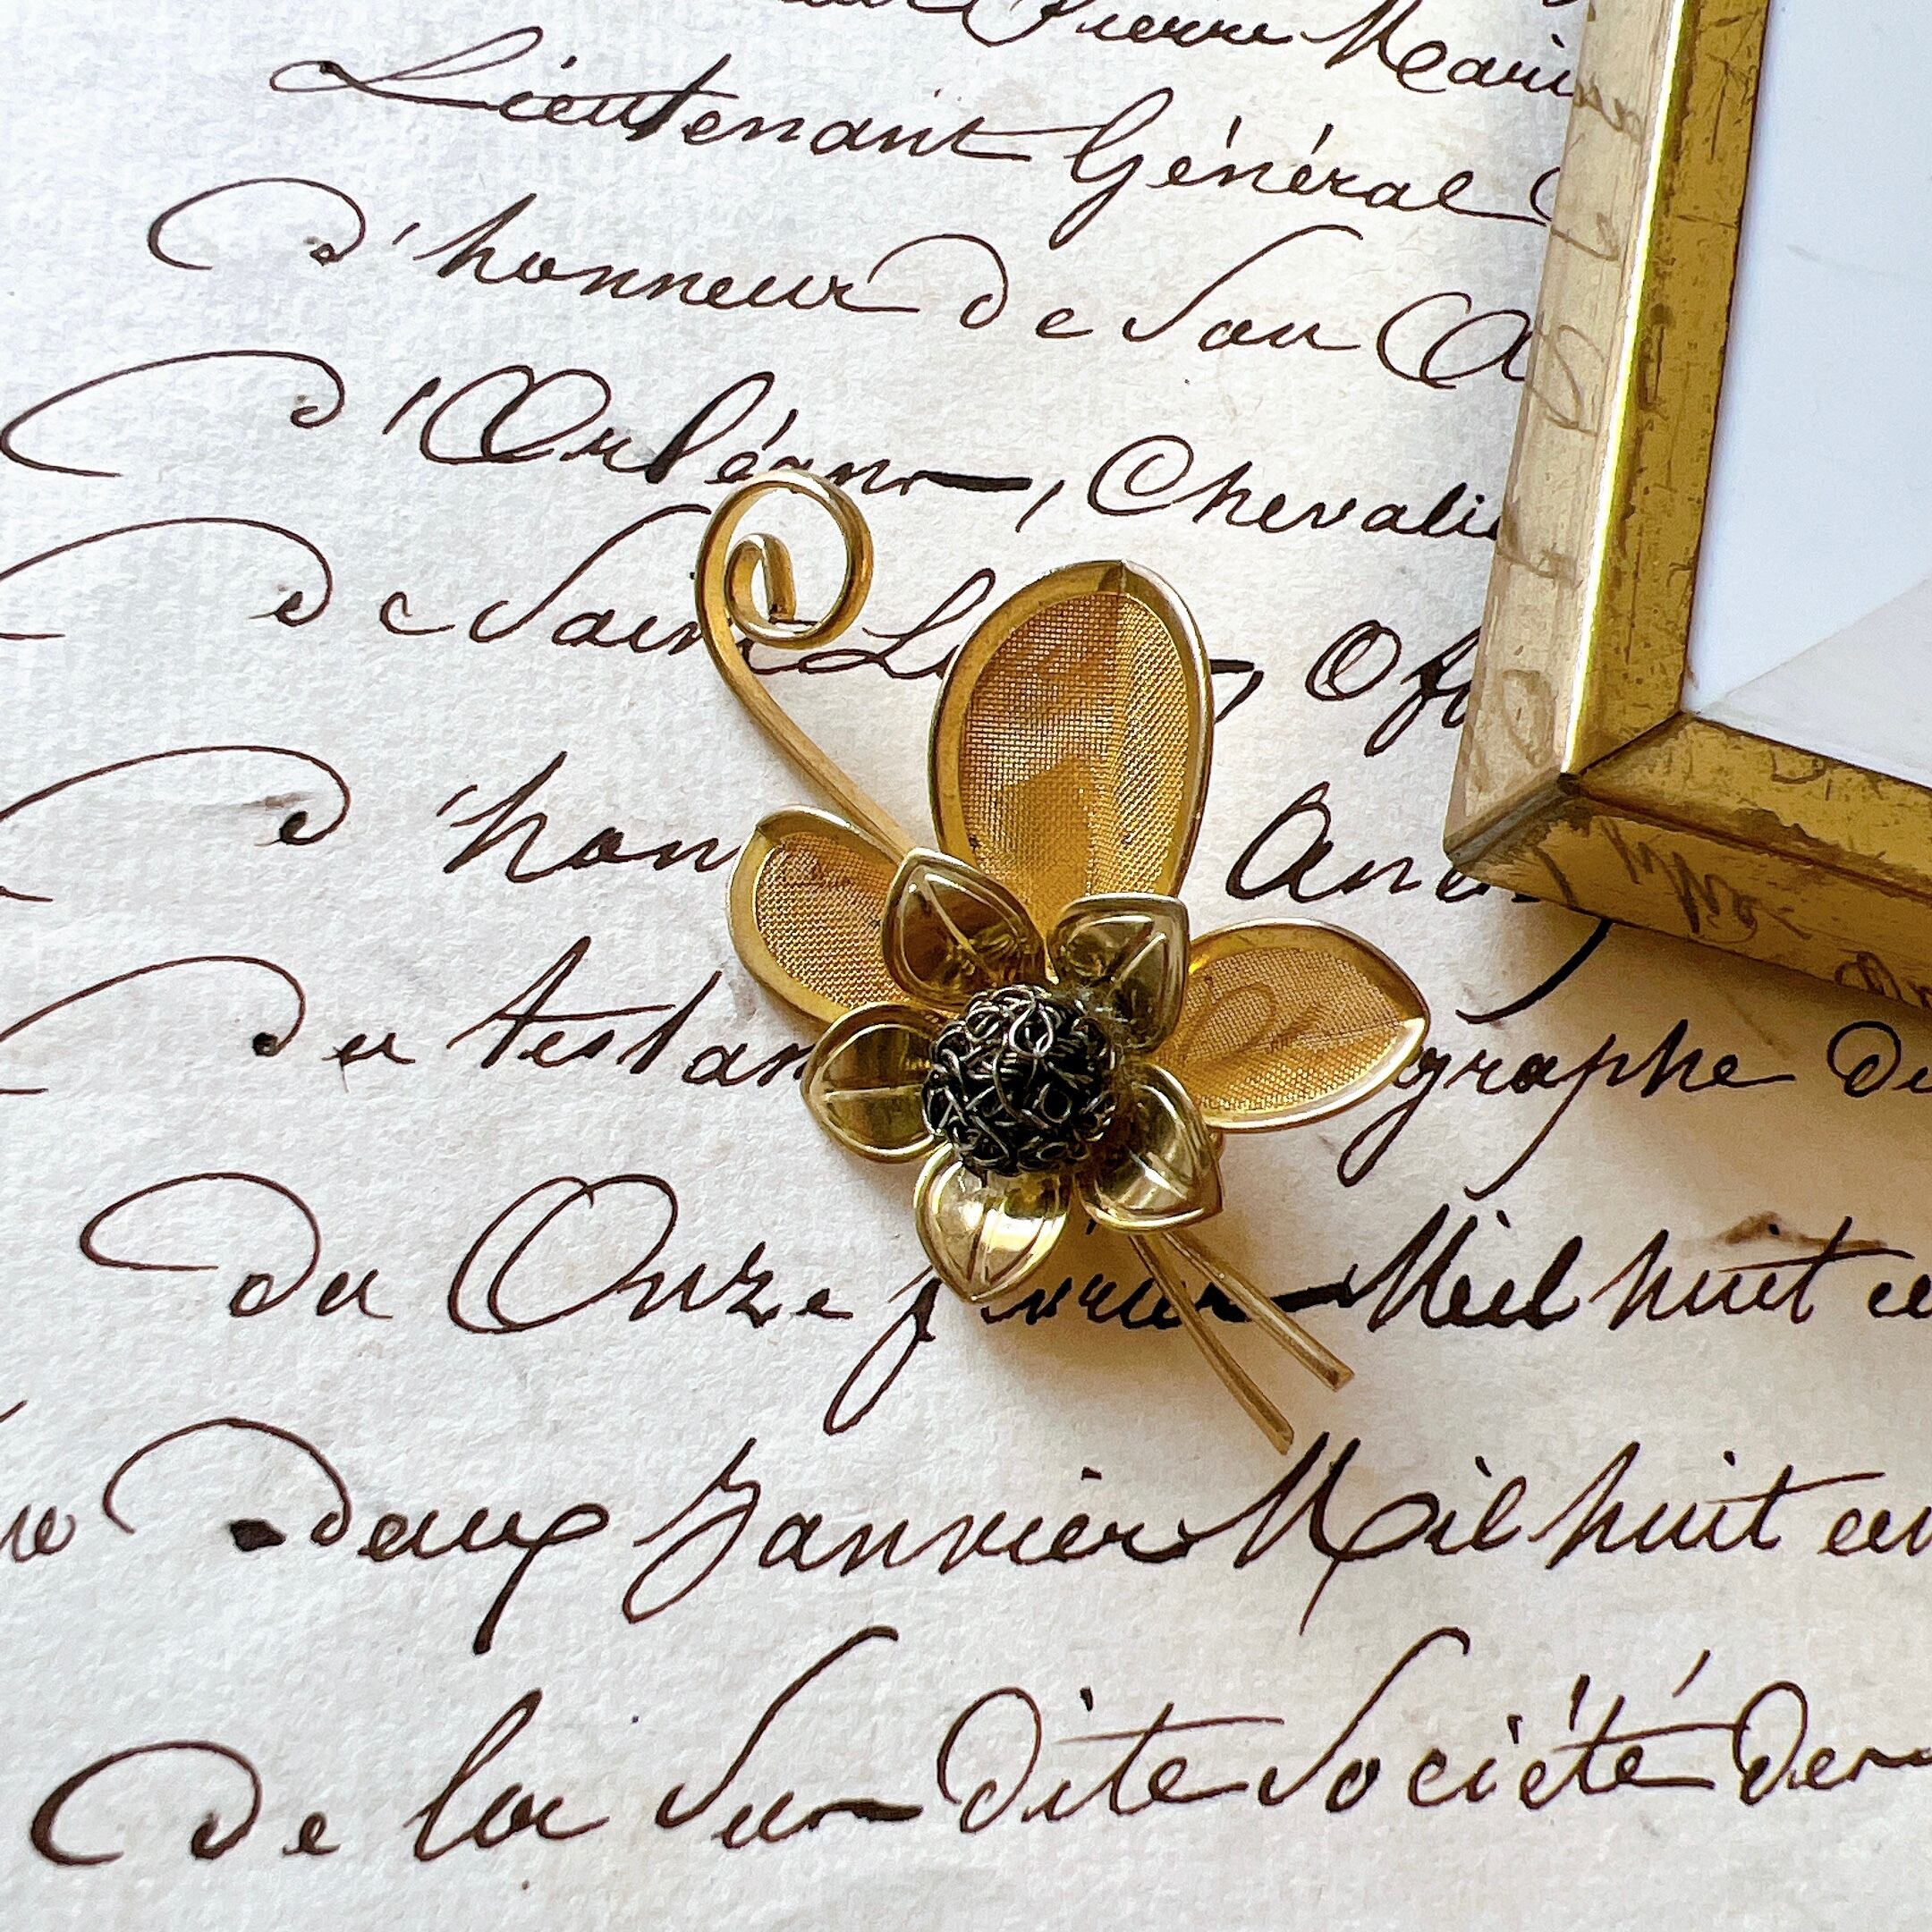 Pierre Marie
Lieutenant Général
d'honneur de Son A
d'Orléans, Chevalie
de Saint L , Off
d'hon
du testam graphe du
du Onze février Mil huit ce
deux Janvier Mil huit cen
De la Sus-dite Société der